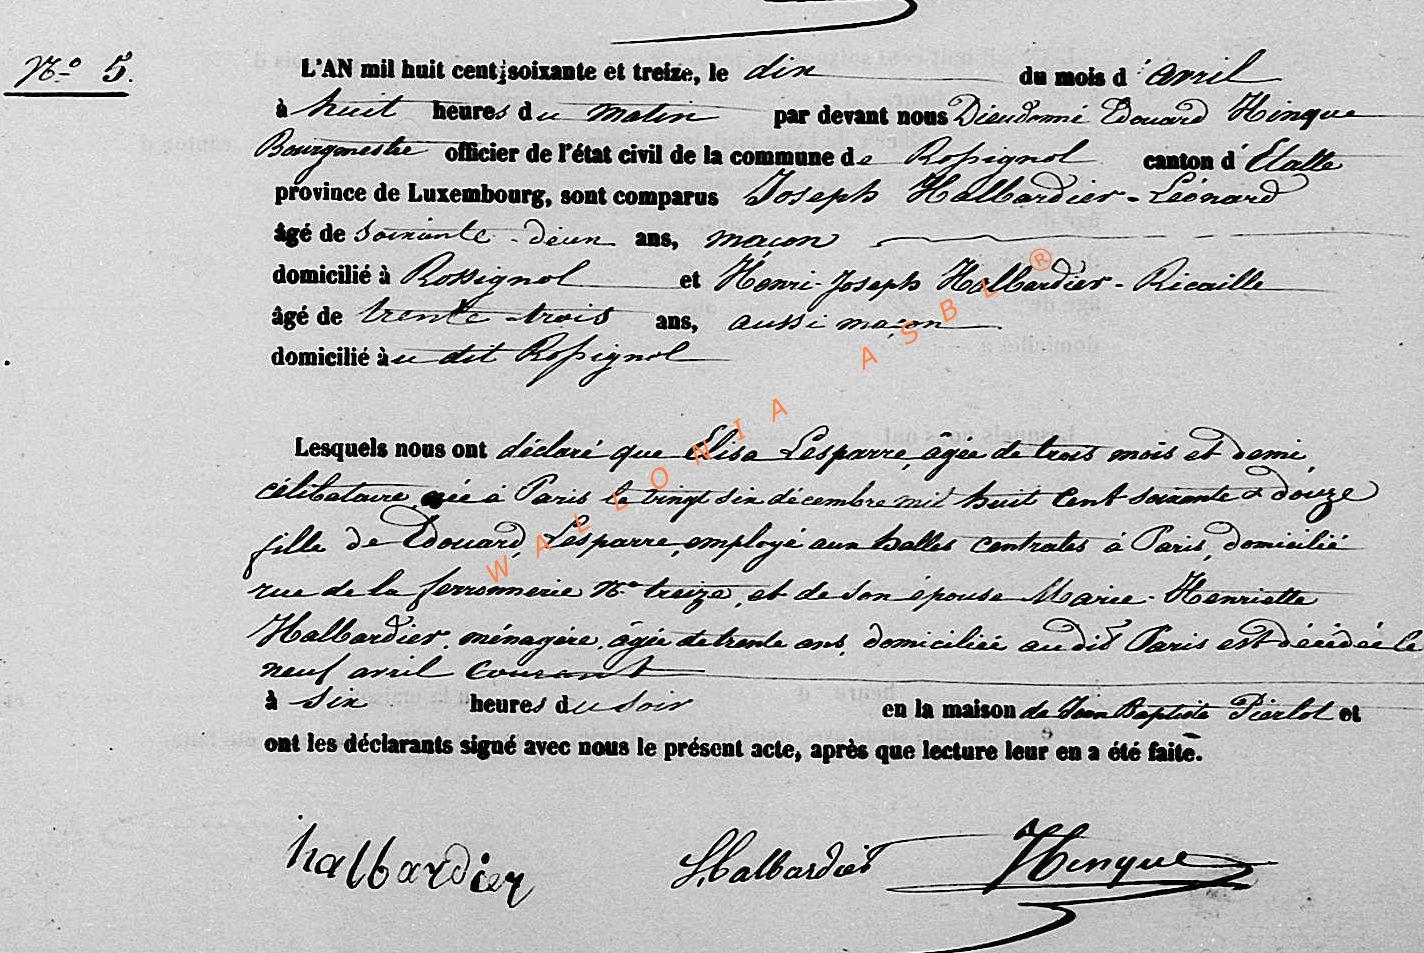 N° 5.
L'AN mil huit cent soixante et treize, le dix du mois d'avril
à huit heures du matin par devant nous Dieudonné Edouard Hinque
Bourgmestre officier de l'état civil de la commune de Rossignol canton d'Etalle
province de Luxembourg, sont comparus Joseph Halbardier-Léonard
âgé de soixante-deux ans, maçon
domicilié à Rossignol et Henri-Joseph Halbardier-Ricaille
âgé de trente-trois ans, aussi maçon
domicilié au dit Rossignol
Lesquels nous ont déclaré que Elisa Lesparre, âgée de trois mois et demi,
célibataire, née à Paris le vingt six décembre mil huit cent soixante & douze
fille de Edouard Lesparre, employé aux halles centrales à Paris, domicilié
rue de la ferronnerie N° treize, et de son épouse Marie-Henriette
Halbardier, ménagère, âgée de trente ans, domiciliée au dit Paris est décédée le
neuf avril courant
à six heures du soir en la maison de Jean Baptiste Pierlot et
ont les déclarants signé avec nous le présent acte, après que lecture leur en a été faite.
halbardier Halbardier Hinque
WALLONIA ASBL ®